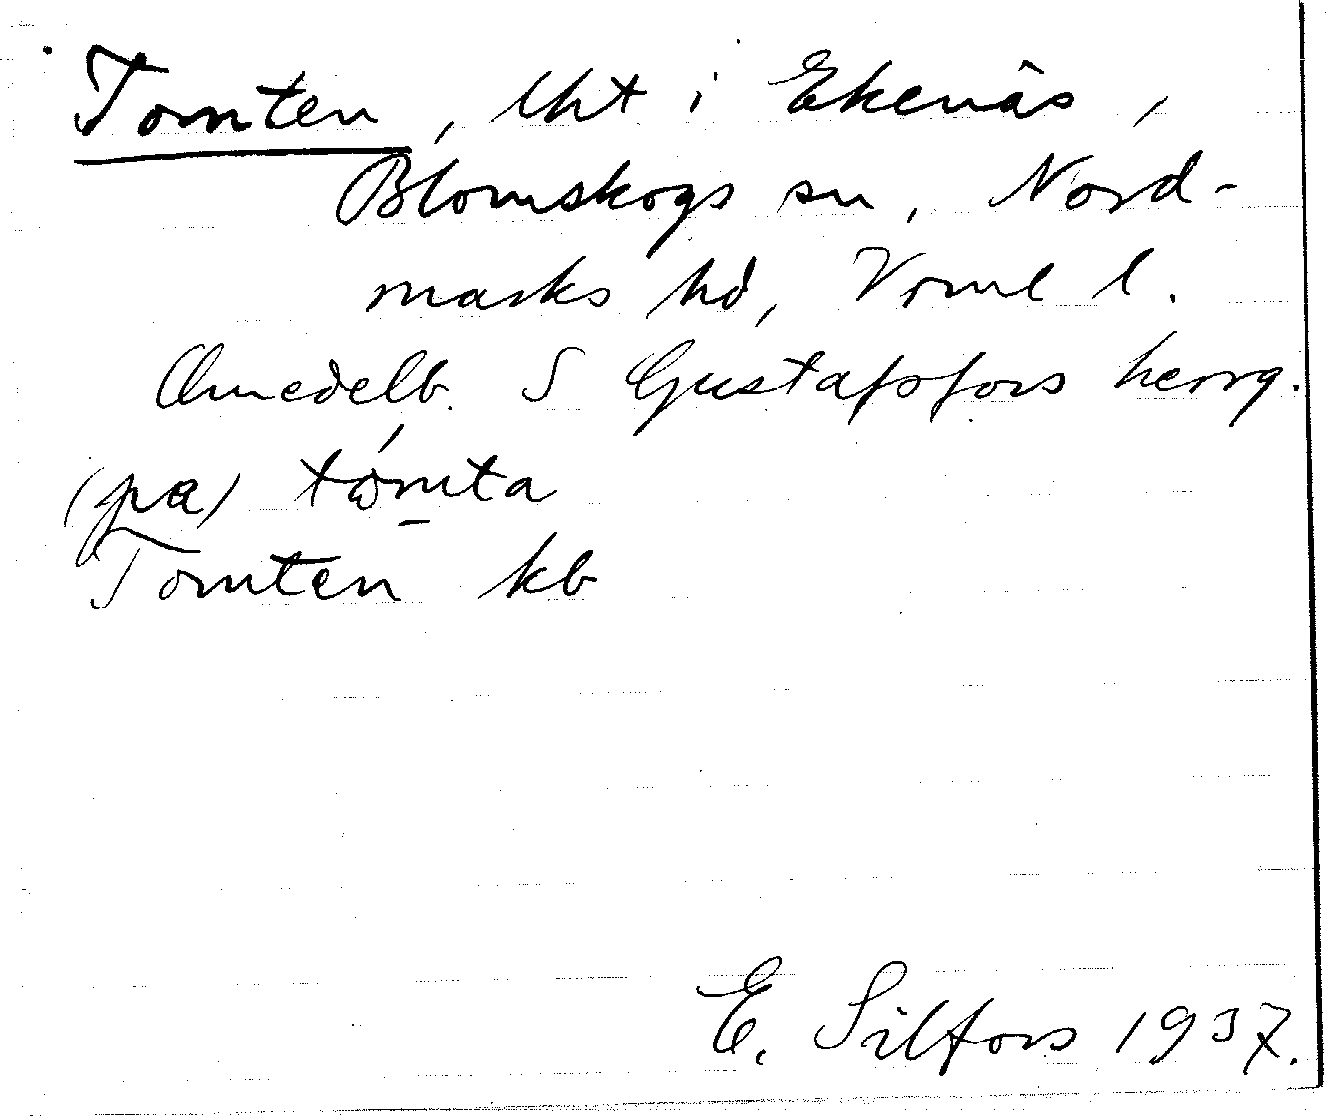 Tomten, lht i Ekenäs,
Blomskogs sn, Nord-
marks hd, Vrml l.
Omedelb. S Gustafsfors herrg.
(pa) tómta
Tomten kb
E. Silfors 1937.